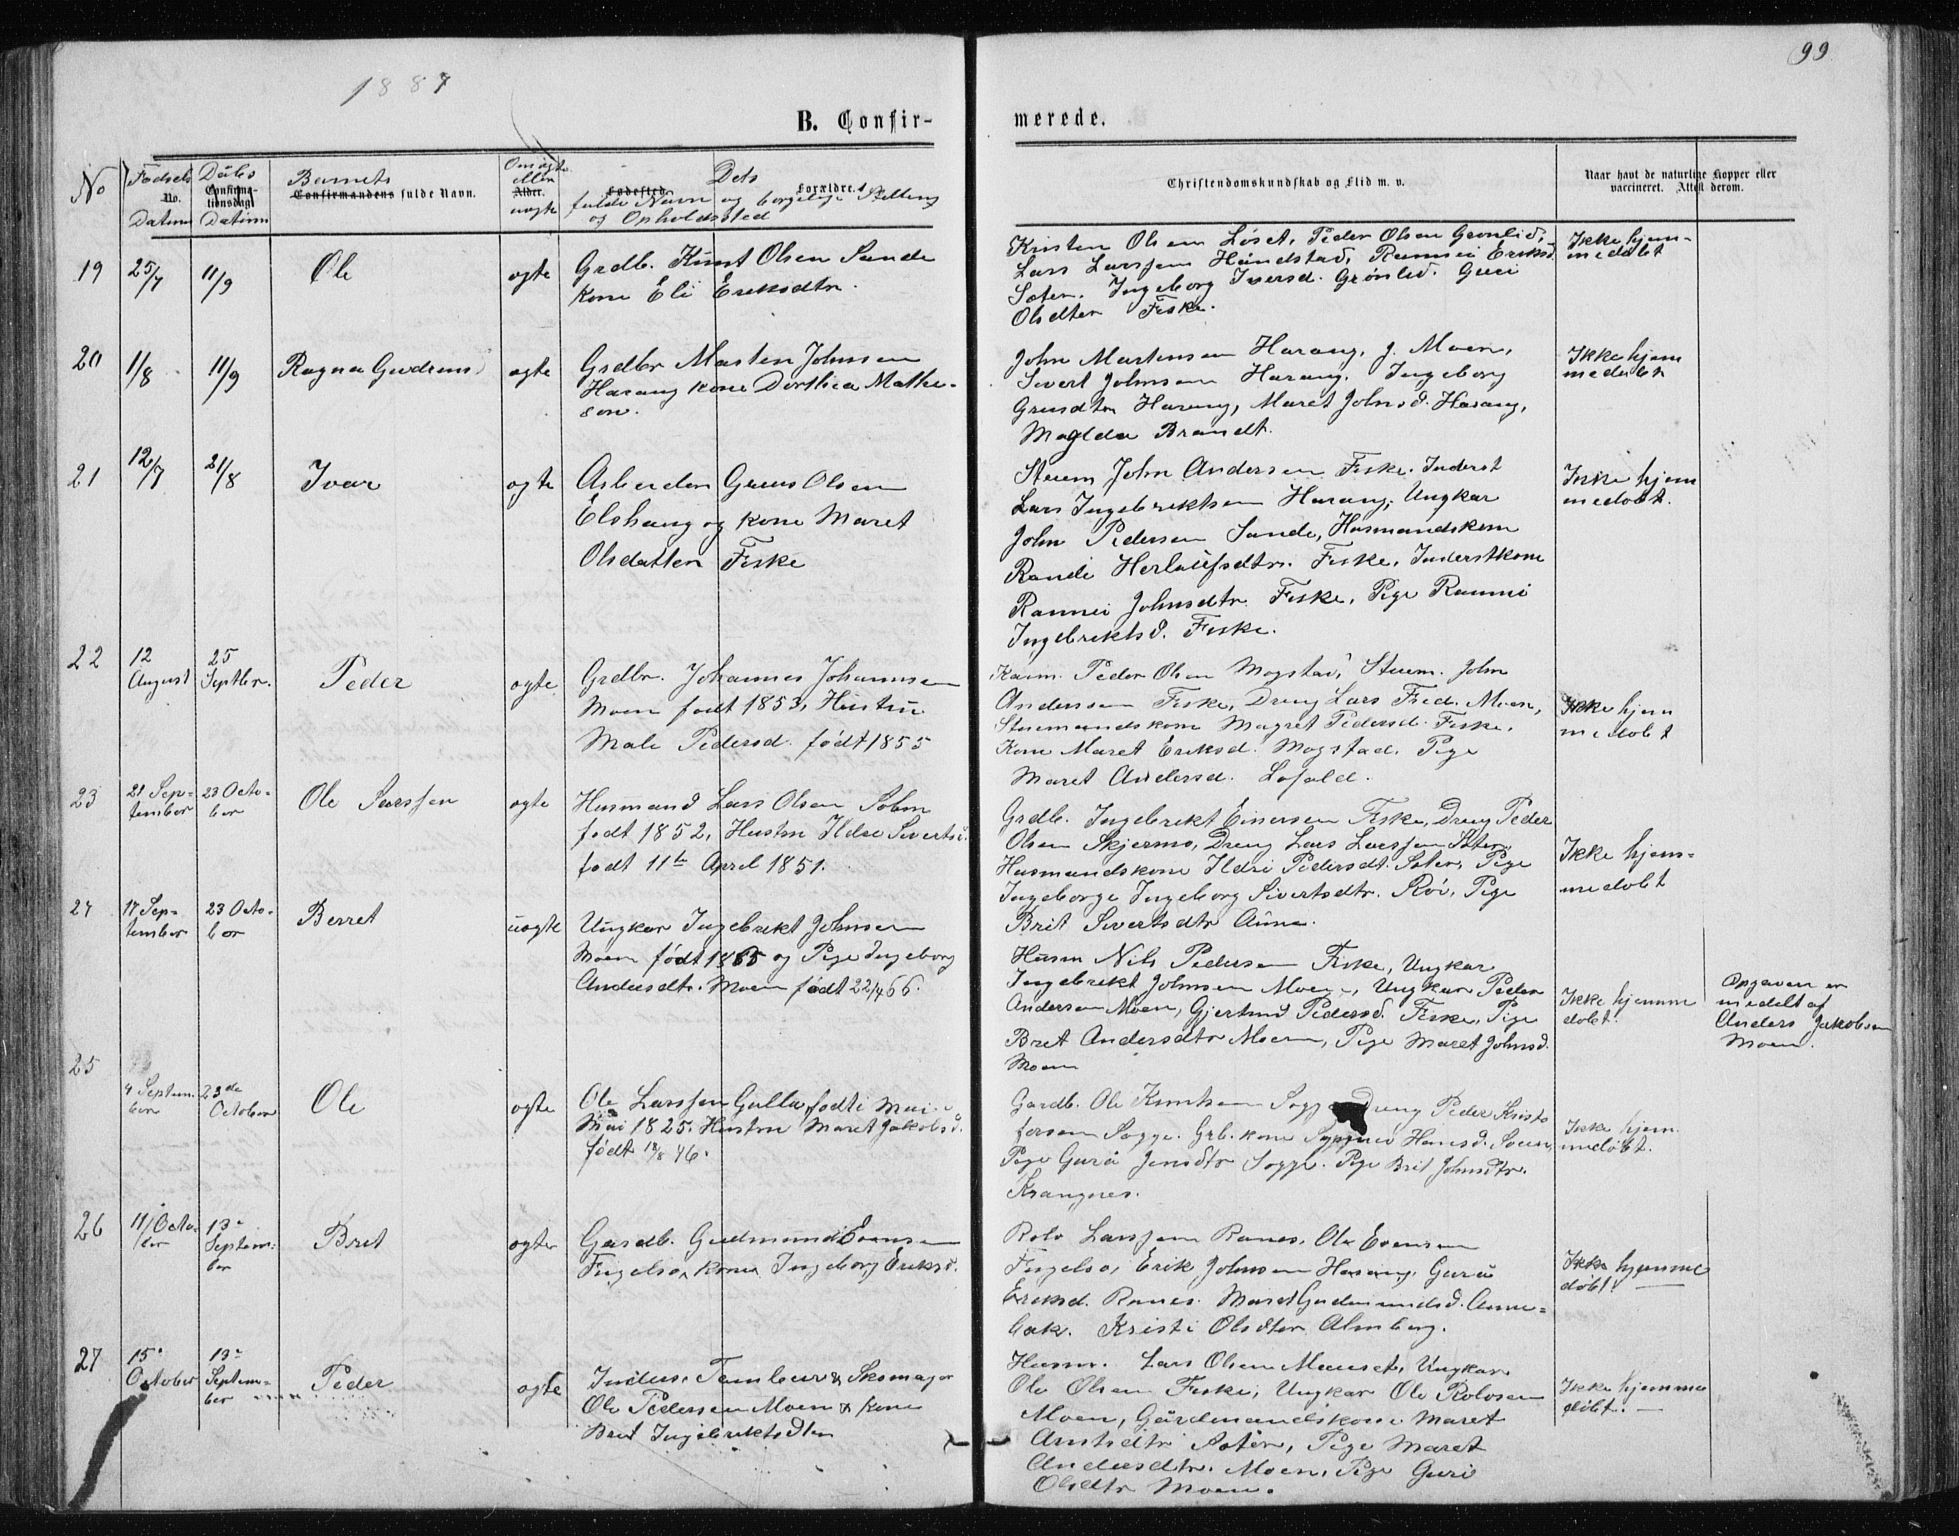 99
1887
B. Confir-
merede.
No
Fødsels
No.
Datum
Døbes
Confirma-
tionsdag
Datum
Barnets
Confirmandens fulde Navn.
Om ægte
eller
Alder.
uægte
Dets
Fødested. Forældre
fulde Navn og borgelige Stilling
og Opholdssted
Christendomskundskab og Flid m. v.
Naar havt de naturlige Kopper eller
vaccineret. Attest derom.
19
25/7
11/9
Ole
ægte
Grdb. Knut Olsen Sande
Kone Eli Eriksdtr.
Kristen Olsen Løset, Peder Olsen Grønlid,
Lars Larssen Handstad, Rannei Eriksd.
Sæter. Ingeborg Iversd. Grønlid. Guri
Olsdter Fiske.
Ikke hjem-
medøbt
20
1/8
11/9
Ragna Gudrun
ægte
Grdbr Marten Johnsen
Harang kone Dorthea Mathe-
sen.
John Martensen Harang, J. Moen,
Sivert Johnsen Harang. Ingeborg
Grundtr Harang, Maret Johnsd. Harang,
Magda Brandt.
Ikke hjem
medøbt
21
12/7
21/8
Ivar
ægte
Arbeider Gruus Olsen
Elshaug og kone Maret
Olsdatter Fiske
Stuem John Andersen Fiske. Inderst
Lars Ingebriktsen Harang, Ungkar
John Pedersen Sande, Husmandskone
Randi Herlaufsdtr. Fiske, Inderstkone
Rannei Johnsdtr Fiske, Pige Rannei
Ingebriktsd. Fiske.
Ikke hjem
medøbt.
22
12
August
25
Septbr.
Peder
ægte
Grdbr. Johannes Johannsen
Moen født 1853, Hustru
Mali Pedersd. født 1855
Kaarm. Peder Olsen Mogstad, Stuem. John
Andersen Fiske, Dreng Lars Fred. Moen,
Stuemandskone Magret Pedersd. Fiske,
Kone Maret Eriksd. Mogstad. Pige
Maret Andersd. Lofald.
Ikke hjem
medøbt
23
21 Sep-
tember
23 Octo-
ber
Ole Larssen
ægte
Husmand Lars Olsen
født 1852, Hustru Ildri Sivertsd.
født 11te April 1851.
Grdb. Ingebrikt Einersen Fiske, Dreng Peder
Olsen Skjermo, Dreng Lars Larssen Sæter,
Husmandskone Ildri Pedersdt. Sæter, Pige
Ingeborge Ingeborg Sivertsdtr. Roi, Pige
Brit Sivertsdtr Aune.
Ikke hjem-
medøbt
24
17 Sep-
tember
23 Octo-
ber
Berret
uægte
Ungkar Ingebrikt Johnsen
Moen født 1865 og Pige Ingeborg
Andersdtr. Moen født 22/4 66.
Husm Nils Pedersen Fiske, Ungkar
Ingebrikt Johnsen Moen, Ungkar Peder
Andersen Moen, Gjertrud Pedersd. Fiske, Pige
Bret Andersdtr Moen, Pige Maret Johnsd.
Moen
Ikke hjemme
døbt.
Opgaven er
medelt af
Anders Jakobsen
Moen.
25
4 Septem-
ber
23de
October
Ole
ægte
Ole Larssen Gulla, født i Mai
Mai 1825. Hustru Maret Jakobsd.
født 12/8 46.
Gardb. Ole Knutsen Sogge Dreng Peder Kristo
fersen Sogge. Grb. kone Hansd. Sveen,
Pige Gurå Jensdtr Sogge. Pige Brit Johnsdtr.
Krangnes.
Ikke hjem
medøbt.
26
11/Octo-
ber
13.
Septem-
ber
Bret
ægte
Gardb. Gudmund Evensen
Fugelsø, kone Ingeborg Eriksd.
Rolv Larssen Ranes, Ole Evensen
Fugelsø, Erik Johnsen Harang, Gurå
Eriksd. Ranes. Maret Gudmundsd. Aune-
bak. Kristi Olsdter Almberg.
Ikke hjemme
døbt. —
27
15.
October
13.
Septem-
ber
Peder
ægte
Inders. Tambur & Skomager
Ole Pedersen Moen & kone
Bret Ingebriktsdter
Husm. Lars Olsen Mauset, Ungkar
Ole Olsen Fiske, Ungkar Ole Rolvsen
Moen, Gårdmandskone Maret
Arntsdtr Sæter, Pige Maret
Andersdtr. Moen, Pige Guri
Olsdtr Moen.
Ikke hjemme
døbt. —